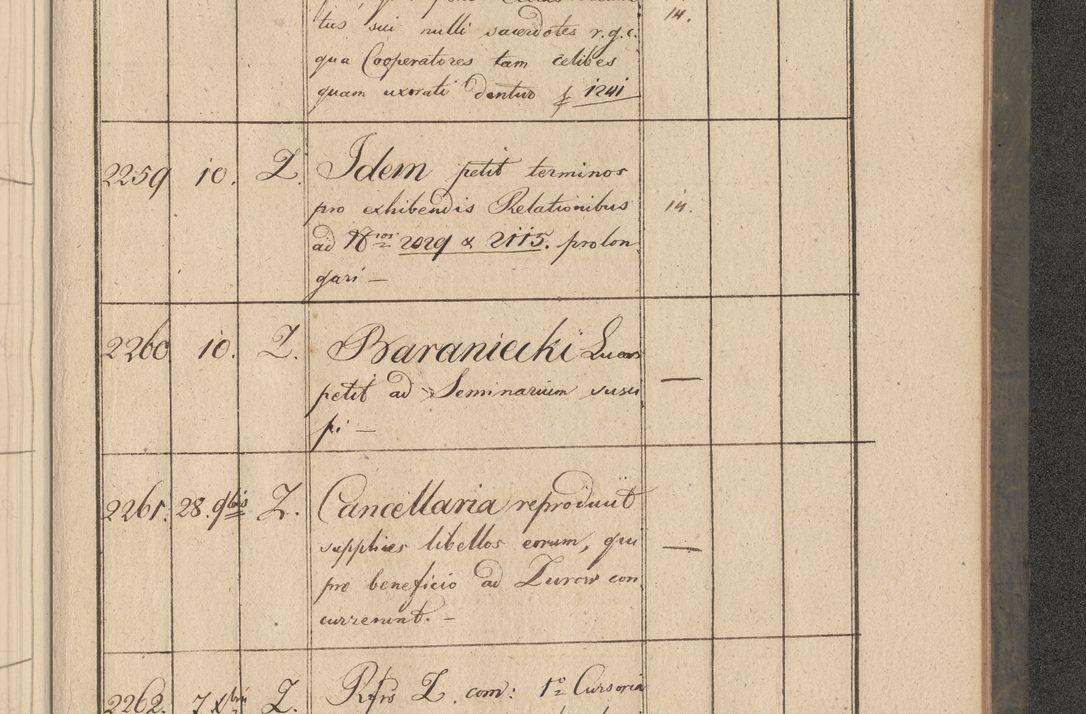 tus sui nulli sacerdotes r.g.c. 14.
qua Cooperatores tam celibes
quam uxorati dentur f 1241
2259 10. Z. Idem petit terminos
pro exhibendis Relationibus 14.
ad Nros 2029 & 2115. prolon
gari —
2260 10. Z. Baraniecki Lucas
petit ad Seminarium susci —
pi —
2261. 28. 9bris Z. Cancellaria reproducit
supplices libellos eorum, qui —
pro beneficio ad Zurow con
currerunt. —
2262. 7 Xbris Z. Z. com: 1o Cursoria